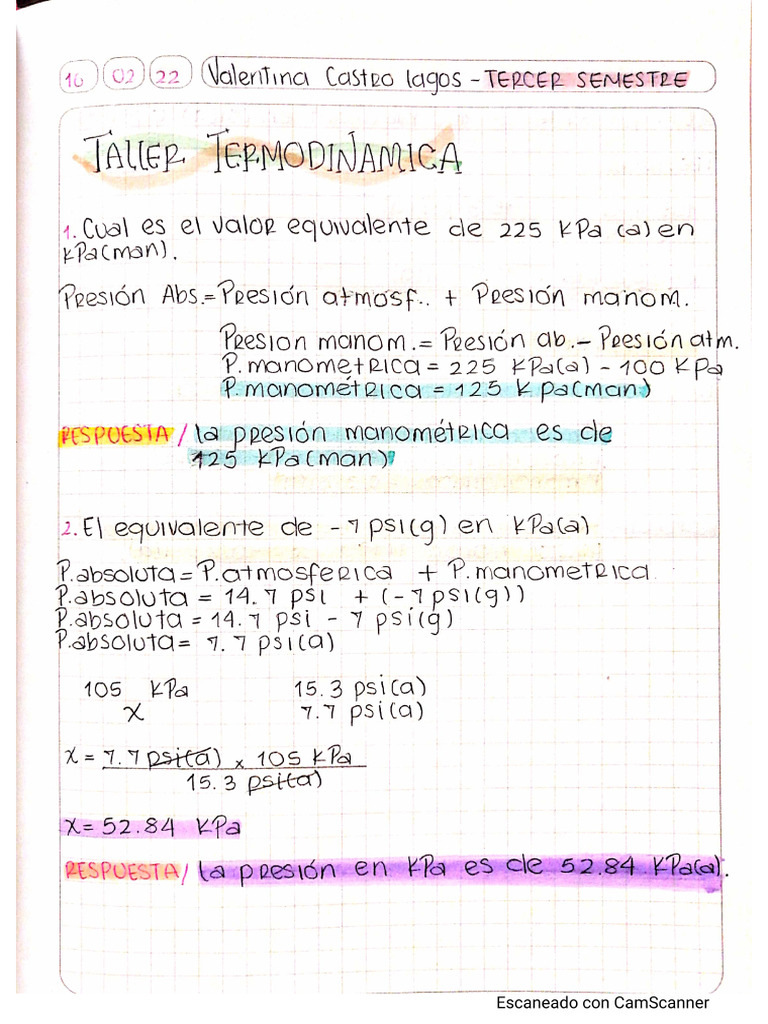 16 02 22 Valentina Castro lagos - TERCER SEMESTRE
TALLER TERMODINAMICA
1. Cual es el valor equivalente de 225 KPa (a) en
KPa(man).
Presión Abs.= Presión atmosf.. + Presión manom.
Presion manom.= Presión ab.- Presión atm.
P.manometrica = 225 KPa(a) - 100 KPa
P.manométrica = 125 K pa(man)
RESPUESTA / la presión manométrica es de
125 KPa(man)
2. El equivalente de -7 psi(g) en KPa(a)
P.absoluta = P.atmosferica + P.manometrica
P.absoluta = 14.7 psi + (-7 psi(g))
P.absoluta = 14.7 psi - 7 psi(g)
P.absoluta= 7.7 psi(a)
105 KPa 15.3 psi(a)
x 7.7 psi(a)
x = 7.7 psi(a) x 105 KPa
15.3 psi(a)
x= 52.84 KPa
RESPUESTA/ la presión en KPa es de 52.84 KPa(a).
Escaneado con CamScanner